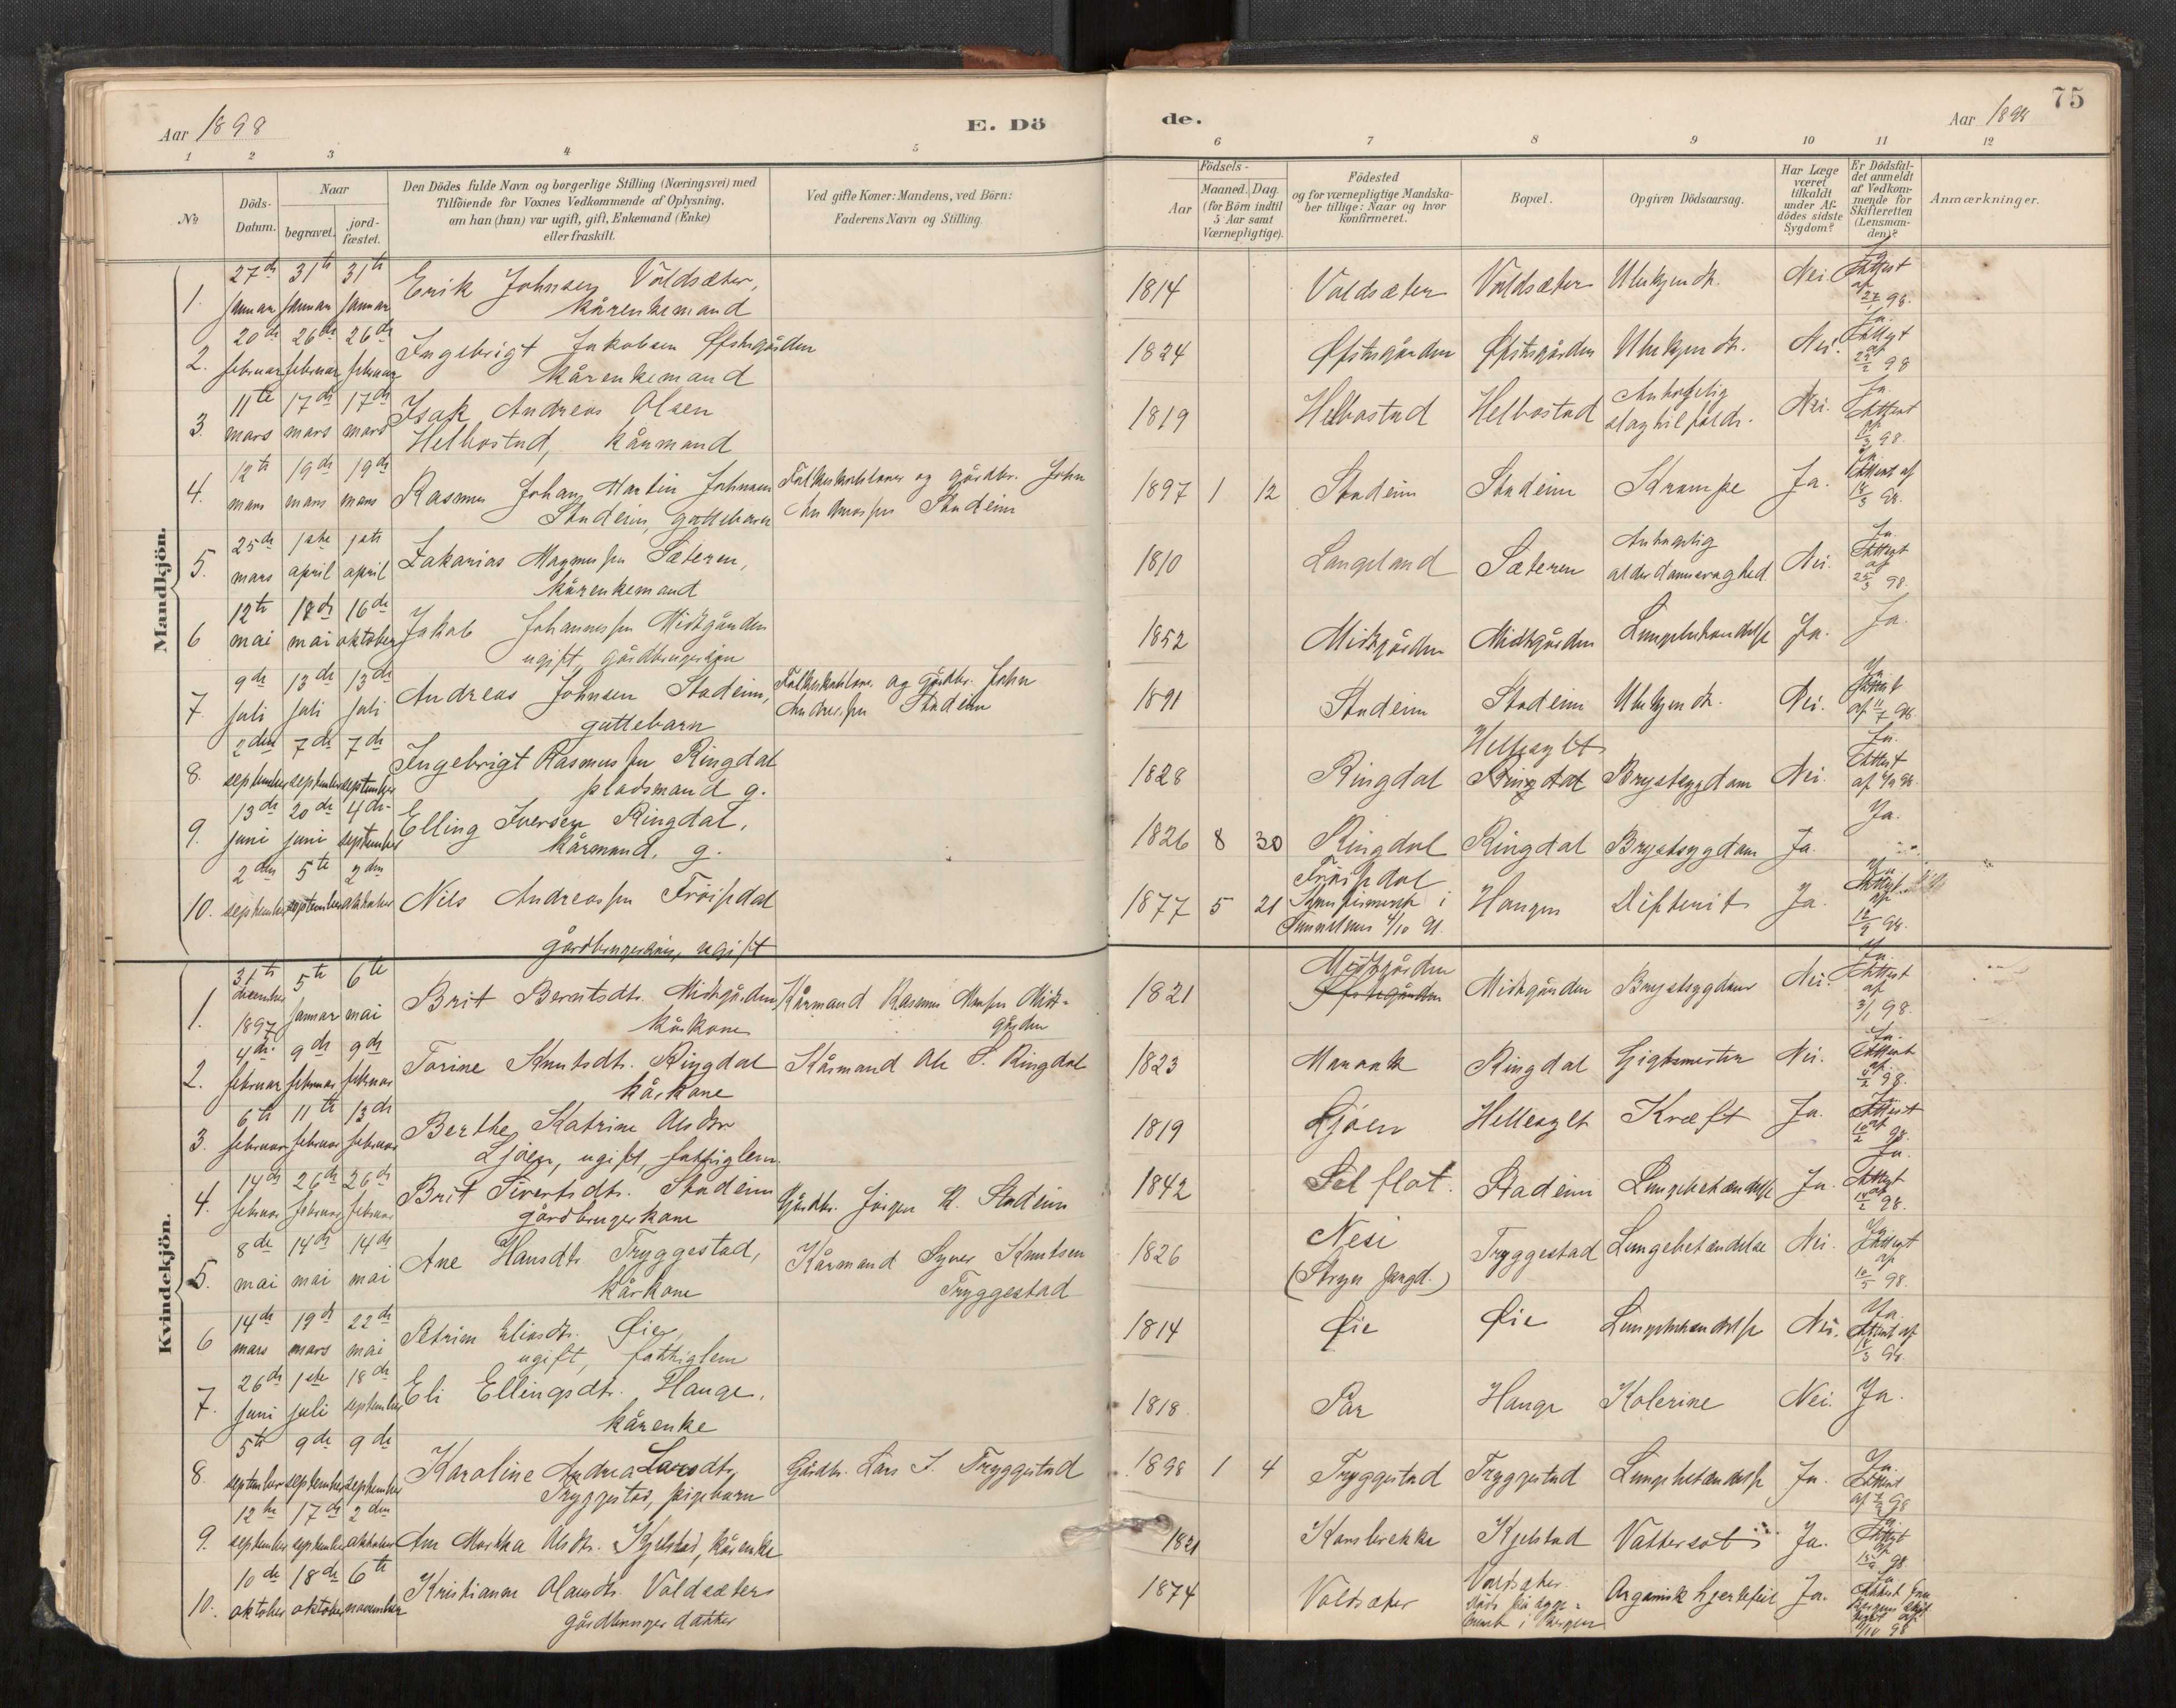 Aar 1898
E. Dö
de.
Aar 1898
75
1 2 3 4 5 6 7 8 9 10 11 12
No
Döds-
Datum.
Naar
begravet.
jord-
fæstet.
Den Dödes fulde Navn og borgerlige Stilling (Næringsvei) med
Tilföiende for Voxnes Vedkommende af Oplysning,
om han (hun) var ugift, gift, Enkemand (Enke)
eller fraskilt.
Ved gifte Koner: Mandens, ved Börn:
Faderens Navn og Stilling
Födsels-
Aar
Maaned. Dag.
(for Börn indtil
5 Aar samt
Værnepligtige).
Födested
og for værnepligtige Mandska-
ber tillige: Naar og hvor
konfirmeret.
Bopæl.
Opgiven Dödsaarsag.
Har Læge
været
tilkaldt
under Af-
dödes sidste
Sygdom?
Er Dödsfal-
det anmeldt
af Vedkom-
mende for
Skifteretten
(Lensman-
den)?
Anmærkninger.
Mandkjön.
1. 27de januar 31te januar 31te januar Erik Johnsen Voldsæter, 1814 Voldsæter Voldsæter Ubekjendt. Nei. Ja. Attest af 27/1 98.
kårenkemand
2. 20de februar 26de februar 26de februar Ingebrigt Jakobsen Øfstegården 1824 Øfstegården Øfstegården Ubekjendt. Nei. Ja. Attest af 22/2 98
kårenkemand
3. 11te mars 17de mars 17de mars Isak Andreas Olsen 1819 Helbostad Helbostad Antagelig slagtilfælde. Nei. Ja. Attest af 98.
Helbostad, kårmand
4. 12te mars 19de mars 19de mars Rasmus Johan Martin Johnsen Folkeskolelærer og gårdbr. John 1897 1 12 Stadeim Stadeim Krampe Ja. Ja. Attest af 18/3 98.
Stadeim, guttebarn Andreassen Stadeim
5. 25de mars 1ste april 1ste april Zakarias Magnussen Sæteren, 1810 Langeland Sæteren Antagelig alderdomssvaghed Nei. Ja. Attest af 25/3 98.
kårenkemand
6 12te mai 18de mai 16de oktober Jakob Johannessen Midtgården 1852 Midtgården Midtgården Lungebetændelse Ja. Ja.
ugift, gårdbrugersøn
7. 9de juli 13de juli 13de juli Andreas Johnsen Stadeim, Folkeskolelærer og gårdbr. John 1891 Stadeim Stadeim Ubekjendt. Nei. Ja. Attest af 11/7 98.
guttebarn Andreassen Stadeim
8. 2den september 7de september 7de september Ingebrigt Rasmussen Ringdal 1828 Ringdal Hellesylt Ringdal Brystsygdom Nei. Ja. Attest af 98.
pladsmand g.
9. 13de juni 20de juni 4de september Elling Iversen Ringdal, 1826 8 30 Ringdal Ringdal Brystsygdom Ja. Ja.
kårmand, g.
10. 2den september 5te september 2den oktober Nils Andreassen Frøisdal 1877 5 21 Frøisdal Konfirmeret i Sunnelven 4/10 91. Haugen Difterit Ja. Ja. Attest af 12/9 98.
gårdbrugersøn, ugift
Kvindekjön.
1. 31te december 1897 5te januar 6te mai Brit Berntsdtr. Midtgården, Kårmand Rasmus Midt- 1821 Midtgården Øfstegården Midtgården Brystsygdom Nei. Ja. Attest af 3/1 98.
kårkone gården
2. 4de februar 9de februar 9de februar Torine Knutsdtr. Ringdal Kårmand Ole S. Ringdal 1823 Maraak Ringdal Gigtsmerter Nei. Ja. Attest af 98.
kårkone
3. 6te februar 11te februar 13de februar Berthe Katrine Olsdtr. 1819 Ljøen Hellesylt Kræft Ja. Ja. Attest af 10/2 98.
Ljøen, ugift, fattiglem
4. 14de februar 26de februar 26de februar Brit Sivertsdtr. Stadeim Gårdbr. Jørgen R. Stadeim 1842 Sel flot. Stadeim Lungebetændelse Ja. Ja. Attest af 14/2 98.
gårdbrugerkone
5. 8de mai 14de mai 14de mai Ane Hansdtr. Tryggestad, Kårmand Syver Knutsen 1826 Nesi Tryggestad Lungebetændelse Nei. Ja. Attest af 10/5 98.
kårkone Tryggestad (Stryn prgd.)
6 14de mars 19de mars 22de mai Petrine Eliasdtr. Øie, 1814 Øie Øie Lungebetændelse Nei. Ja. Attest af 18/3 98.
ugift, fattiglem
7. 26de juni 1ste juli 18de september Eli Ellingsdtr. Hauge, 1818. Par Hauge Kolerine Nei. Ja.
kårenke
8. 5te september 9de september 9de september Karoline Andrea Larsdtr. Gårdbr. Lars I. Tryggestad 1898 1 4 Tryggestad Tryggestad Lungebetændelse Ja. Ja. Attest af 98
Tryggestad, pigebarn
9. 12te september 17de september 2den oktober Ane Martha Olsdtr. Kjelstad, kårenke 1821 Korsbrekke Kjelstad Vattersot Ja. Ja. Attest af 98.
10. 10de oktober 18de oktober 6te november Kristianne Olausdtr. Voldsæter 1874 Voldsæter Voldsæter døde på syge- huset i Bergen Organisk hjertefeil Ja. Ja. Attest fra Bergens af 11/10 98
gårdbruger datter